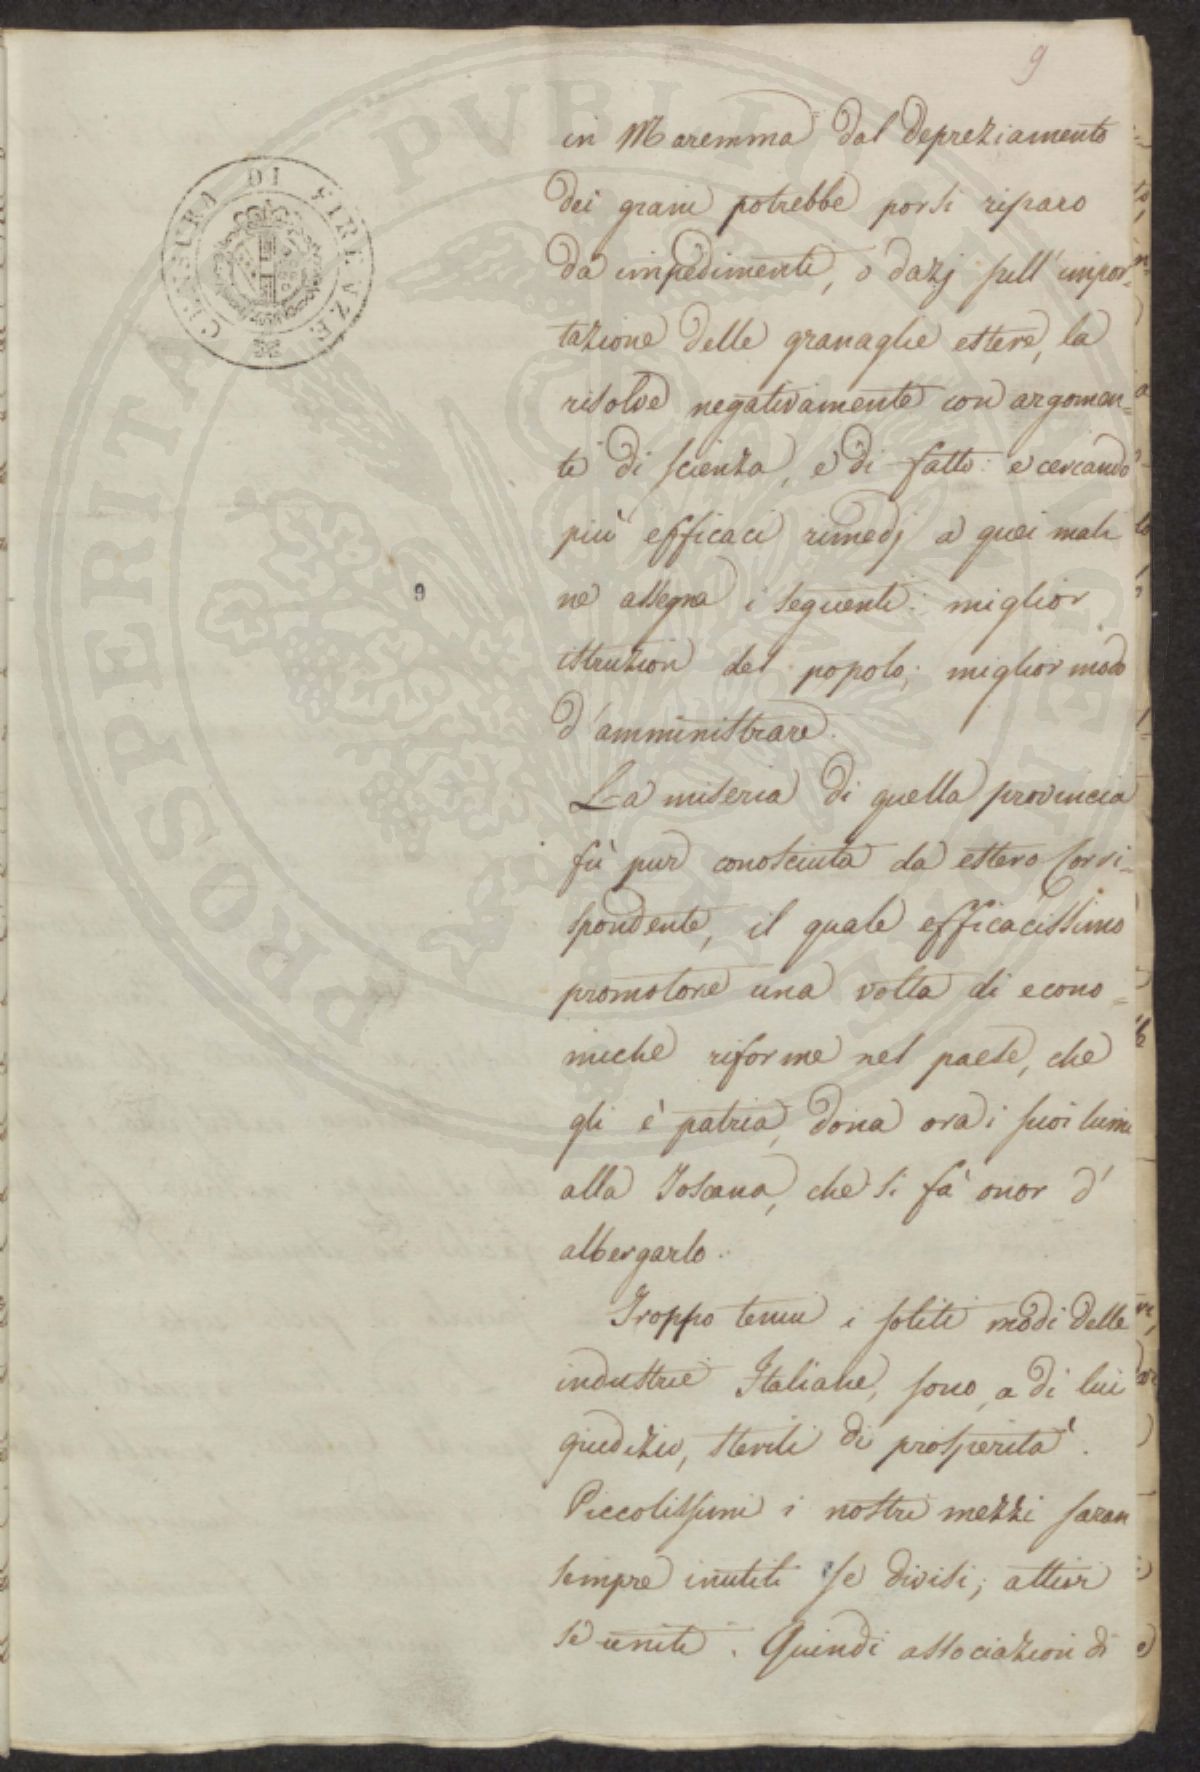 9
in Maremma dal depreziamento
dei grani potrebbe porsi riparo
da impedimenti, o dazj sull'impor=
tazione delle granaglie estere, la
risolve negativamente con argomen=
ti di scienza, e di fatto: e cercando
più efficaci rimedj a quei mali
ne assegna i seguenti: miglior
istruzion del popolo; miglior modo
d'amministrare.
La miseria di quella provincia
fù pur conosciuta da estero Corri=
spondente, il quale efficacissimo
promotore una volta di econo=
miche riforme nel paese, che
gli è patria, dona ora i suoi lumi
alla Toscana, che si fà onor d'
albergarlo.
Troppo tenui i soliti modi delle
industrie Italiane, sono, a di lui
giudizio, sterili di prosperità.
Piccolissimi i nostri mezzi saran
sempre inutili se divisi; attivi
se uniti. Quindi associazioni di
CENSURA DI FIRENZE
9
PROSPERITAS PVBLICA